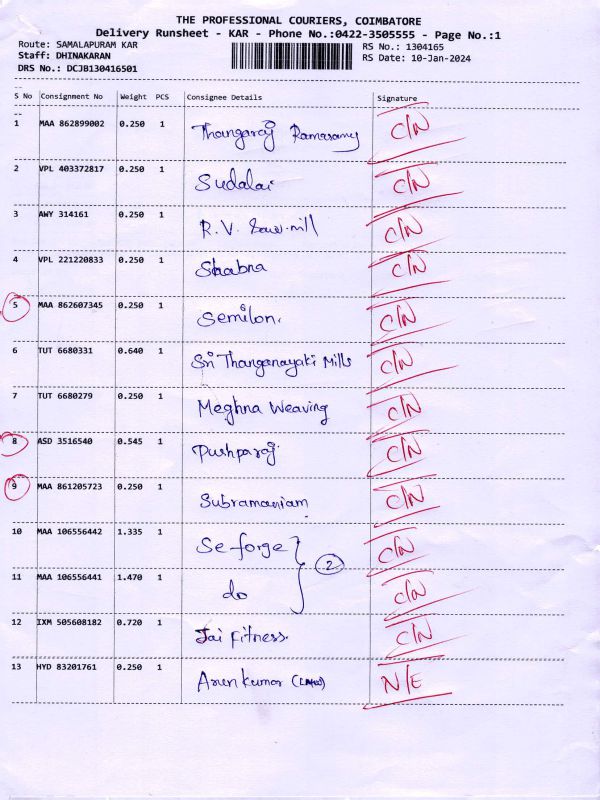 THE PROFESSIONAL COURIERS, COIMBATORE
Delivery Runsheet - KAR - Phone No.:0422-3505555 - Page No.:1
Route: SAMALAPURAM KAR RS No.: 1304165
Staff: DHINAKARAN RS Date: 10-Jan-2024
DRS No.: DCJB130416501
S No Consignment No Weight PCS Consignee Details Signature
1 MAA 862899002 0.250 1 Thangaraj Ramasamy C/N
2 VPL 403372817 0.250 1 Sudalai C/N
3 AWY 314161 0.250 1 R.V. Saw mill C/N
4 VPL 221220833 0.250 1 Shabna C/N
5 MAA 862607345 0.250 1 Semilon. C/N
6 TUT 6680331 0.640 1 Sri Thanganayaki Mills C/N
7 TUT 6680279 0.250 1 Meghna Weaving C/N
8 ASD 3516540 0.545 1 Pushparaj C/N
9 MAA 861205723 0.250 1 Subramaniam C/N
10 MAA 106556442 1.335 1 Se forge 2 C/N
11 MAA 106556441 1.470 1 do C/N
12 IXM 505608182 0.720 1 Jai Fitness. C/N
13 HYD 83201761 0.250 1 Arun kumar N/E